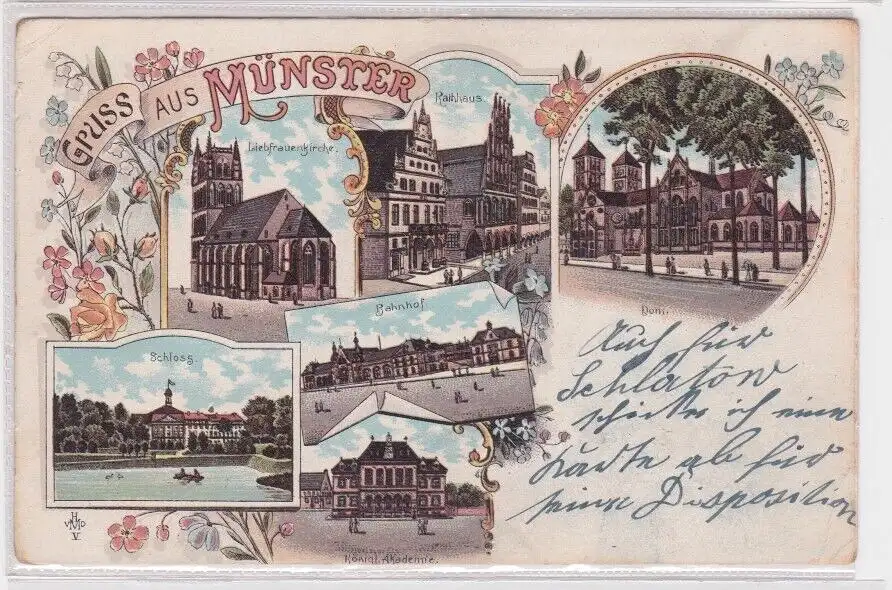 GRUSS AUS MÜNSTER
Liebfrauenkirche.
Rathhaus.
Dom.
Bahnhof
Schloss.
Königl. Akademie.
Auch für
Schlatow
schicke ich eine
Karte ab für
seine Disposition